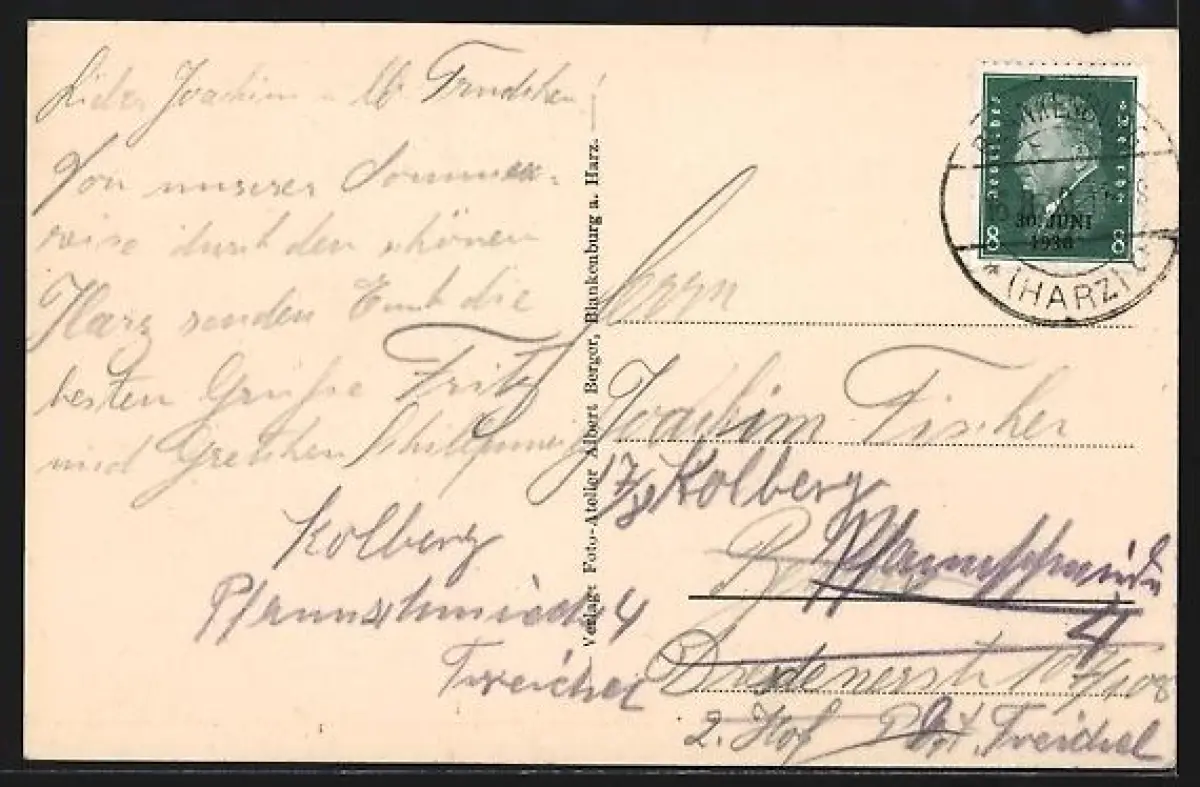 Lieber Joachim u. lb. Trudchen!
Von unserer Sommer-
reise durch den schönen
Harz senden Euch die
besten Grüße Fritz
und Gretchen
Kolberg
Pfannschmiede 4
Treichel
Verlag: Foto-Atelier Albert Berger, Blankenburg a. Harz.
Deutsches Reich
30. JUNI
1930
8 8
BLANKENBURG
* (HARZ)
Herrn
Joachim Fischer
17/8 Kolberg
Pfannschmiede
4
Dresdenerstr 107/108
2. Hof Treichel